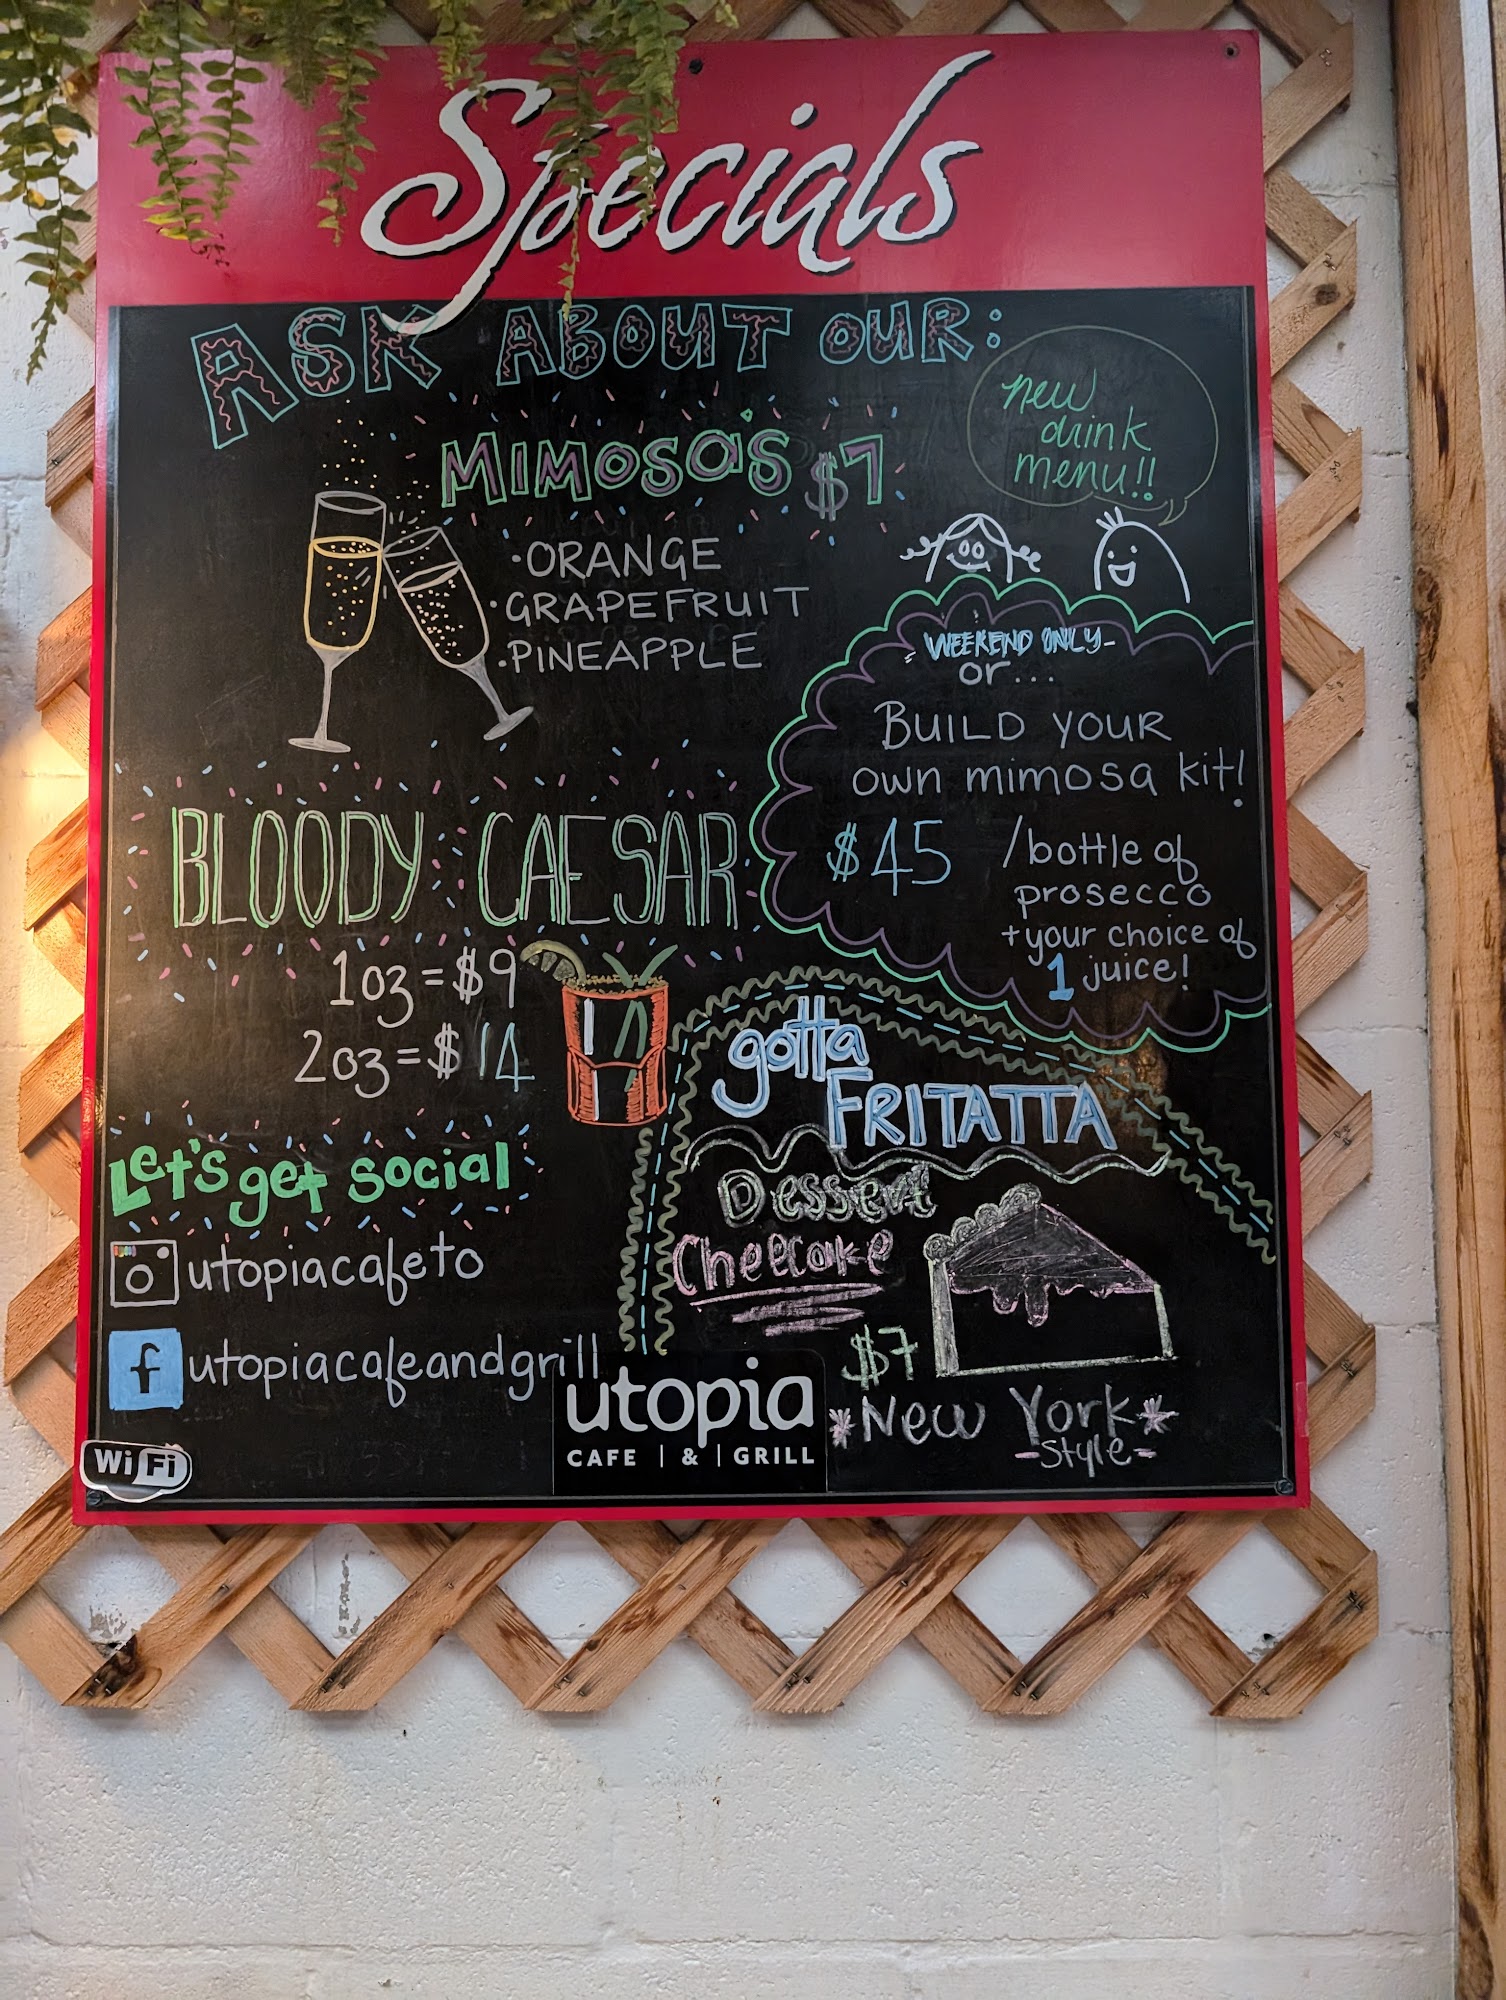 Specials
ASK ABOUT OUR:
new
drink
menu!!
MIMOSA'S $7
·ORANGE
·GRAPEFRUIT
·PINEAPPLE
WEEKEND ONLY-
or...
BUILD YOUR
own mimosa kit!
$45 /bottle of
prosecco
+your choice of
1 juice!
BLOODY CAESAR
1oz = $9
2oz = $14
gotta
FRITATTA
Dessert
Cheecake
$7
*New York*
-Style-
Let's get social
utopiacafeto
f utopiacafeandgrill
utopia
CAFE | & | GRILL
Wi Fi